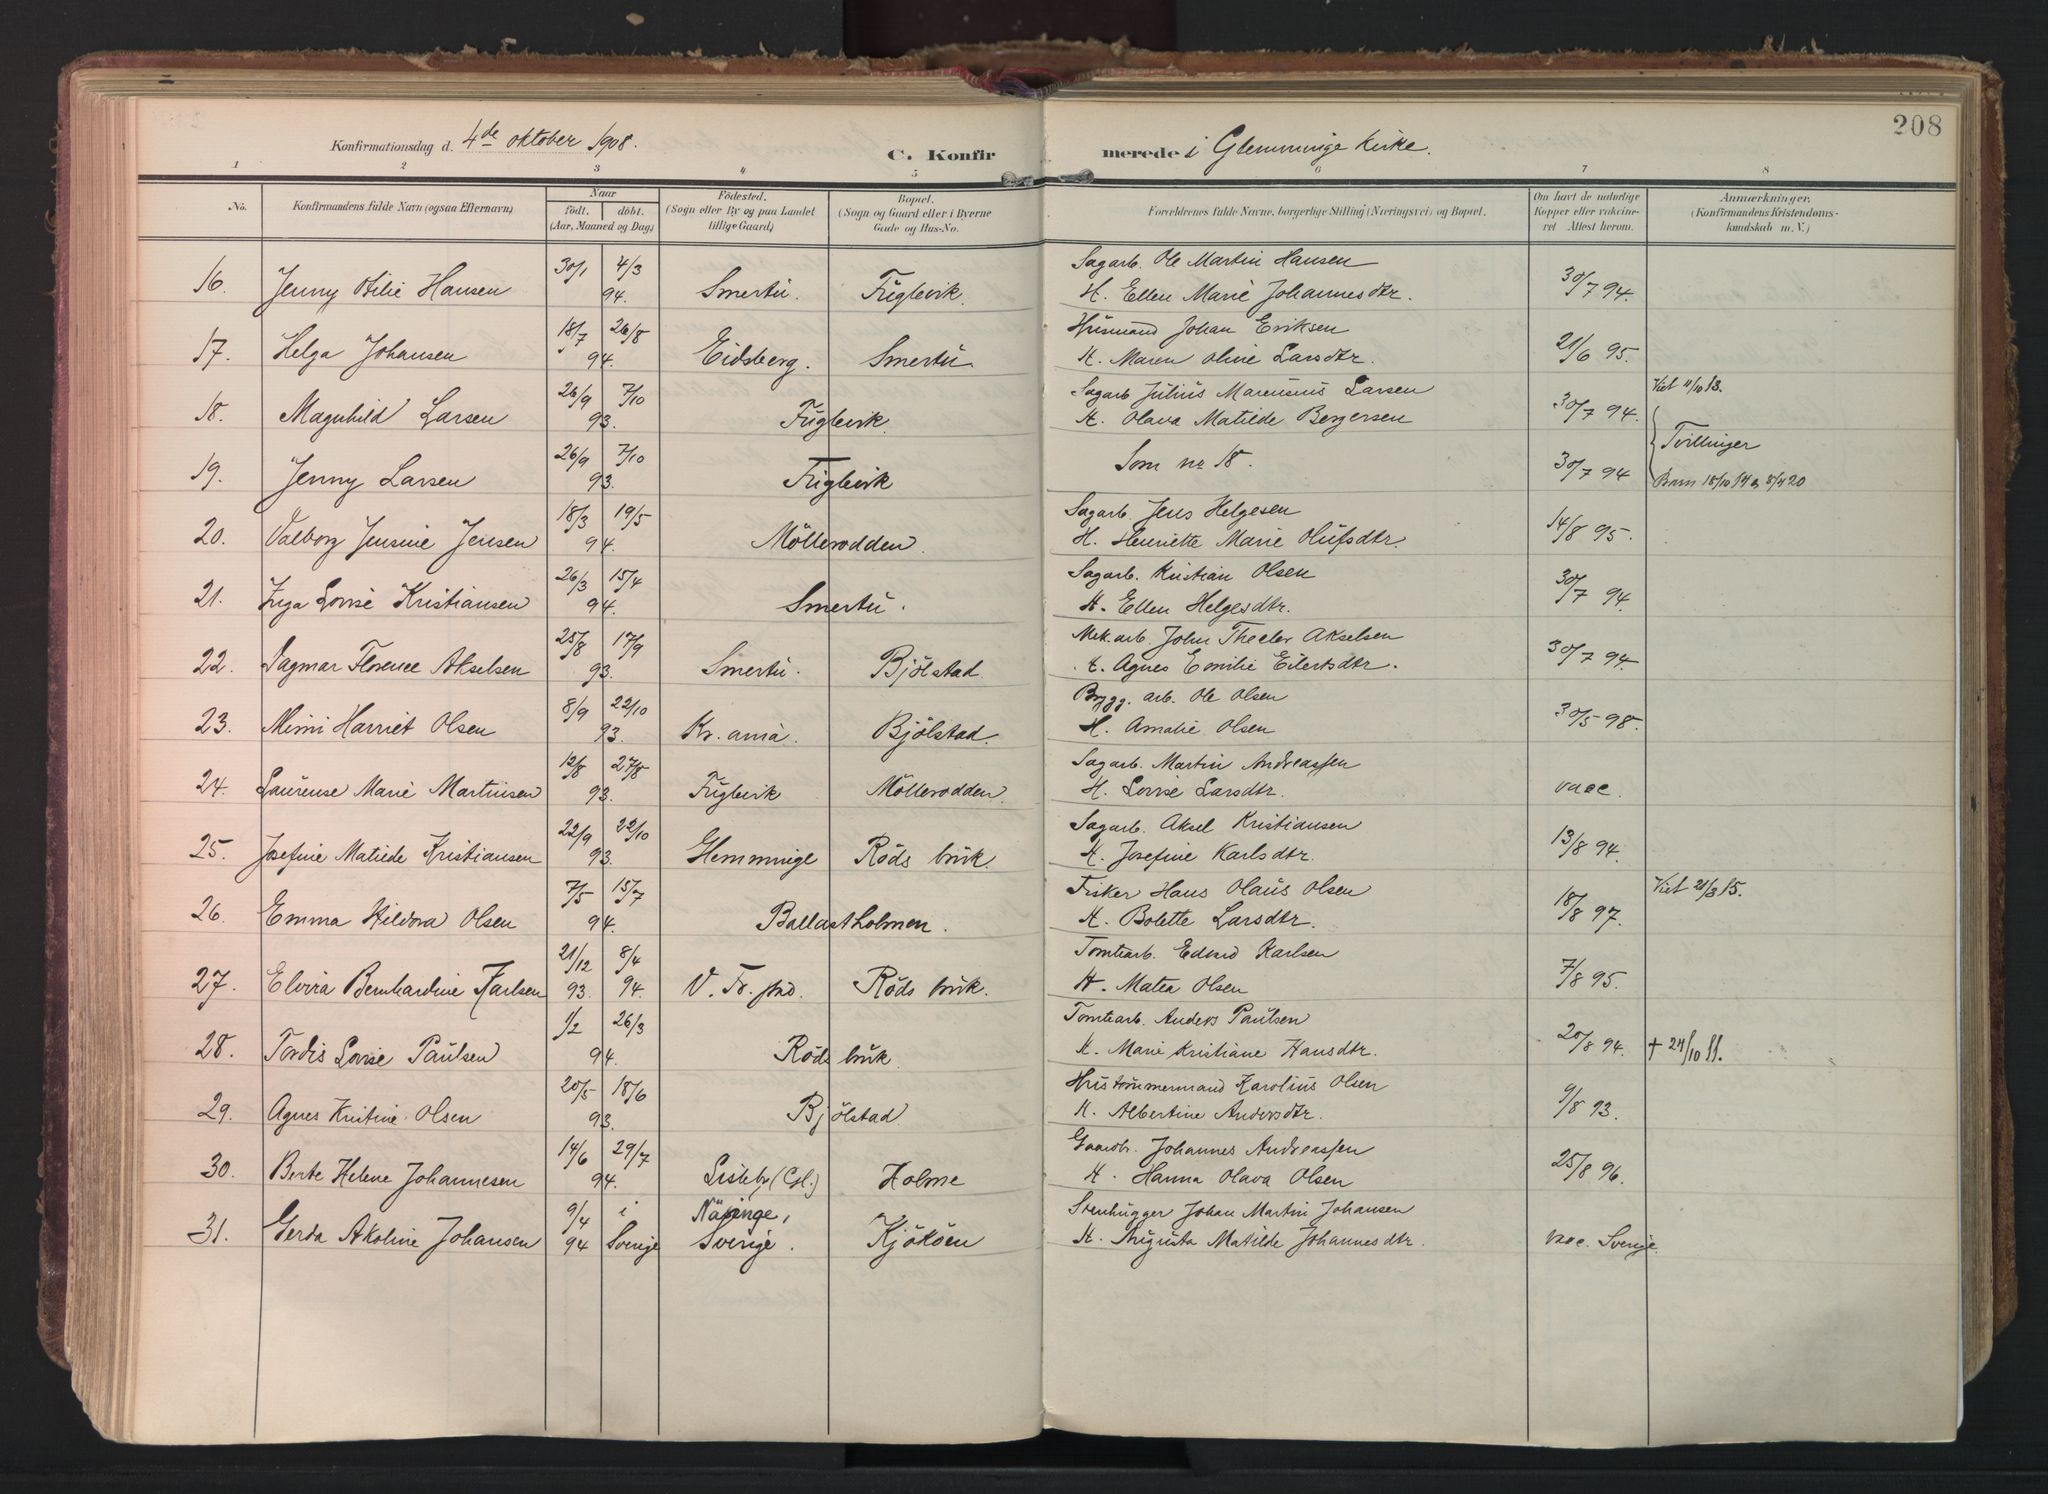 208
Konfirmationsdag d. 4de oktober 1908. C. Konfirmerede i Glemminge kirke.
1 2 3 4 5 6 7 8
No. Konfirmandens fulde Navn (ogsaa Efternavn) Naar født, døbt. (Aar, Maaned og Dag) Födested. (Sogn eller By og paa Landet tillige Gaard) Bopæl. (Sogn og Gaard eller i Byerne Gade og Hus-No. Forældrenes fulde Navne, borgerlige Stilling (Næringsvei) og Bopæl. Om havt de naturlige Kopper eller vaccineret Attest herom. Anmærkninger. (Konfirmandens Kristendomskundskab m. V.)
16. Jenny Otilie Hansen 30/1 4/3 94. Smertu. Fuglevik. Sagarb. Ole Martin Hansen
H. Ellen Marie Johannesdtr. 30/7 94.
17. Helga Johansen 18/7 26/8 94. Eidsberg. Smertu. Husmand Johan Eriksen
H. Maren Oline Larsdtr. 21/6 95.
18. Magnhild Larsen 26/9 7/10 93. Fuglevik. Sagarb Julius Larsen
H. Olava Matilde Bergersen 30/7 94. Viet 11/10 13.
Tvillinger
19. Jenny Larsen 26/9 7/10 93. Fuglevik Som nr 18. 30/7 94 Barn 18/10 14 & 8/4 20
20. Valborg Jensine Jensen 18/3 19/5 94. Möllerodden. Sagarb. Jens Helgesen
H. Henriette Marie Olufsdtr. 14/8 95.
21. Inga Lovise Kristiansen 26/3 15/4 94. Smertu. Sagarb. Kristian Olsen
H. Ellen Helgesdtr. 30/7 94.
22. Dagmar Florence Akselsen 25/8 17/9 93. Smertu. Bjölstad. Mek. arb. John Akselsen
H. Agnes Emilie Eilertsdtr. 30/7 94.
23. Mimi Harriet Olsen 8/9 22/10 93. Kr. ania. Bjölstad. Brygg. arb. Ole Olsen
H. Amalie Olsen 30/5 98.
24. Laurense Marie Martinsen 12/8 27/8 93. Fuglevik Möllerodden. Sagarb. Martin Andreassen
H. Lovise Larsdtr. vacc.
25. Josefine Matilde Kristiansen 22/9 22/10 93. Glemminge Röds bruk. Sagarb. Aksel Kristiansen
H. Josefine Karlsdtr. 13/8 94.
26. Emma Hildora Olsen 7/5 15/7 94. Ballastholmen. Fisker Hans Olaus Olsen
H. Bolette Larsdtr. 18/8 97. Viet 21/3 15.
27. Elvira Bernhardine Karlsen 21/12 93. 8/4 94. V. Fr. stad. Röds bruk. Tomtearb. Edvard Karlsen
H. Matea Olsen 7/8 95.
28. Tordis Lovise Paulsen 1/2 26/3 94. Röds bruk. Tomtearb. Anders Paulsen
H. Marie Kristiane Hansdtr. 20/8 94. † 24/10 11.
29. Agnes Kristine Olsen 20/5 18/6 93. Bjölstad Hustömmermand Karolius Olsen
H. Albertine Andersdtr. 9/8 93.
30. Berte Helene Johannesen 14/6 29/7 94. Lisleby (Gl.) Holme Gaardbr. Johannes Andreassen
H. Hanna Olava Olsen 25/8 96.
31. Gerda Akoline Johansen 9/4 94 i Sverige Näsinge, Sverige. Kjököen Stenhugger Johan Martin Johansen
H. Augusta Matilde Johannesdtr. vacc. Sverige.